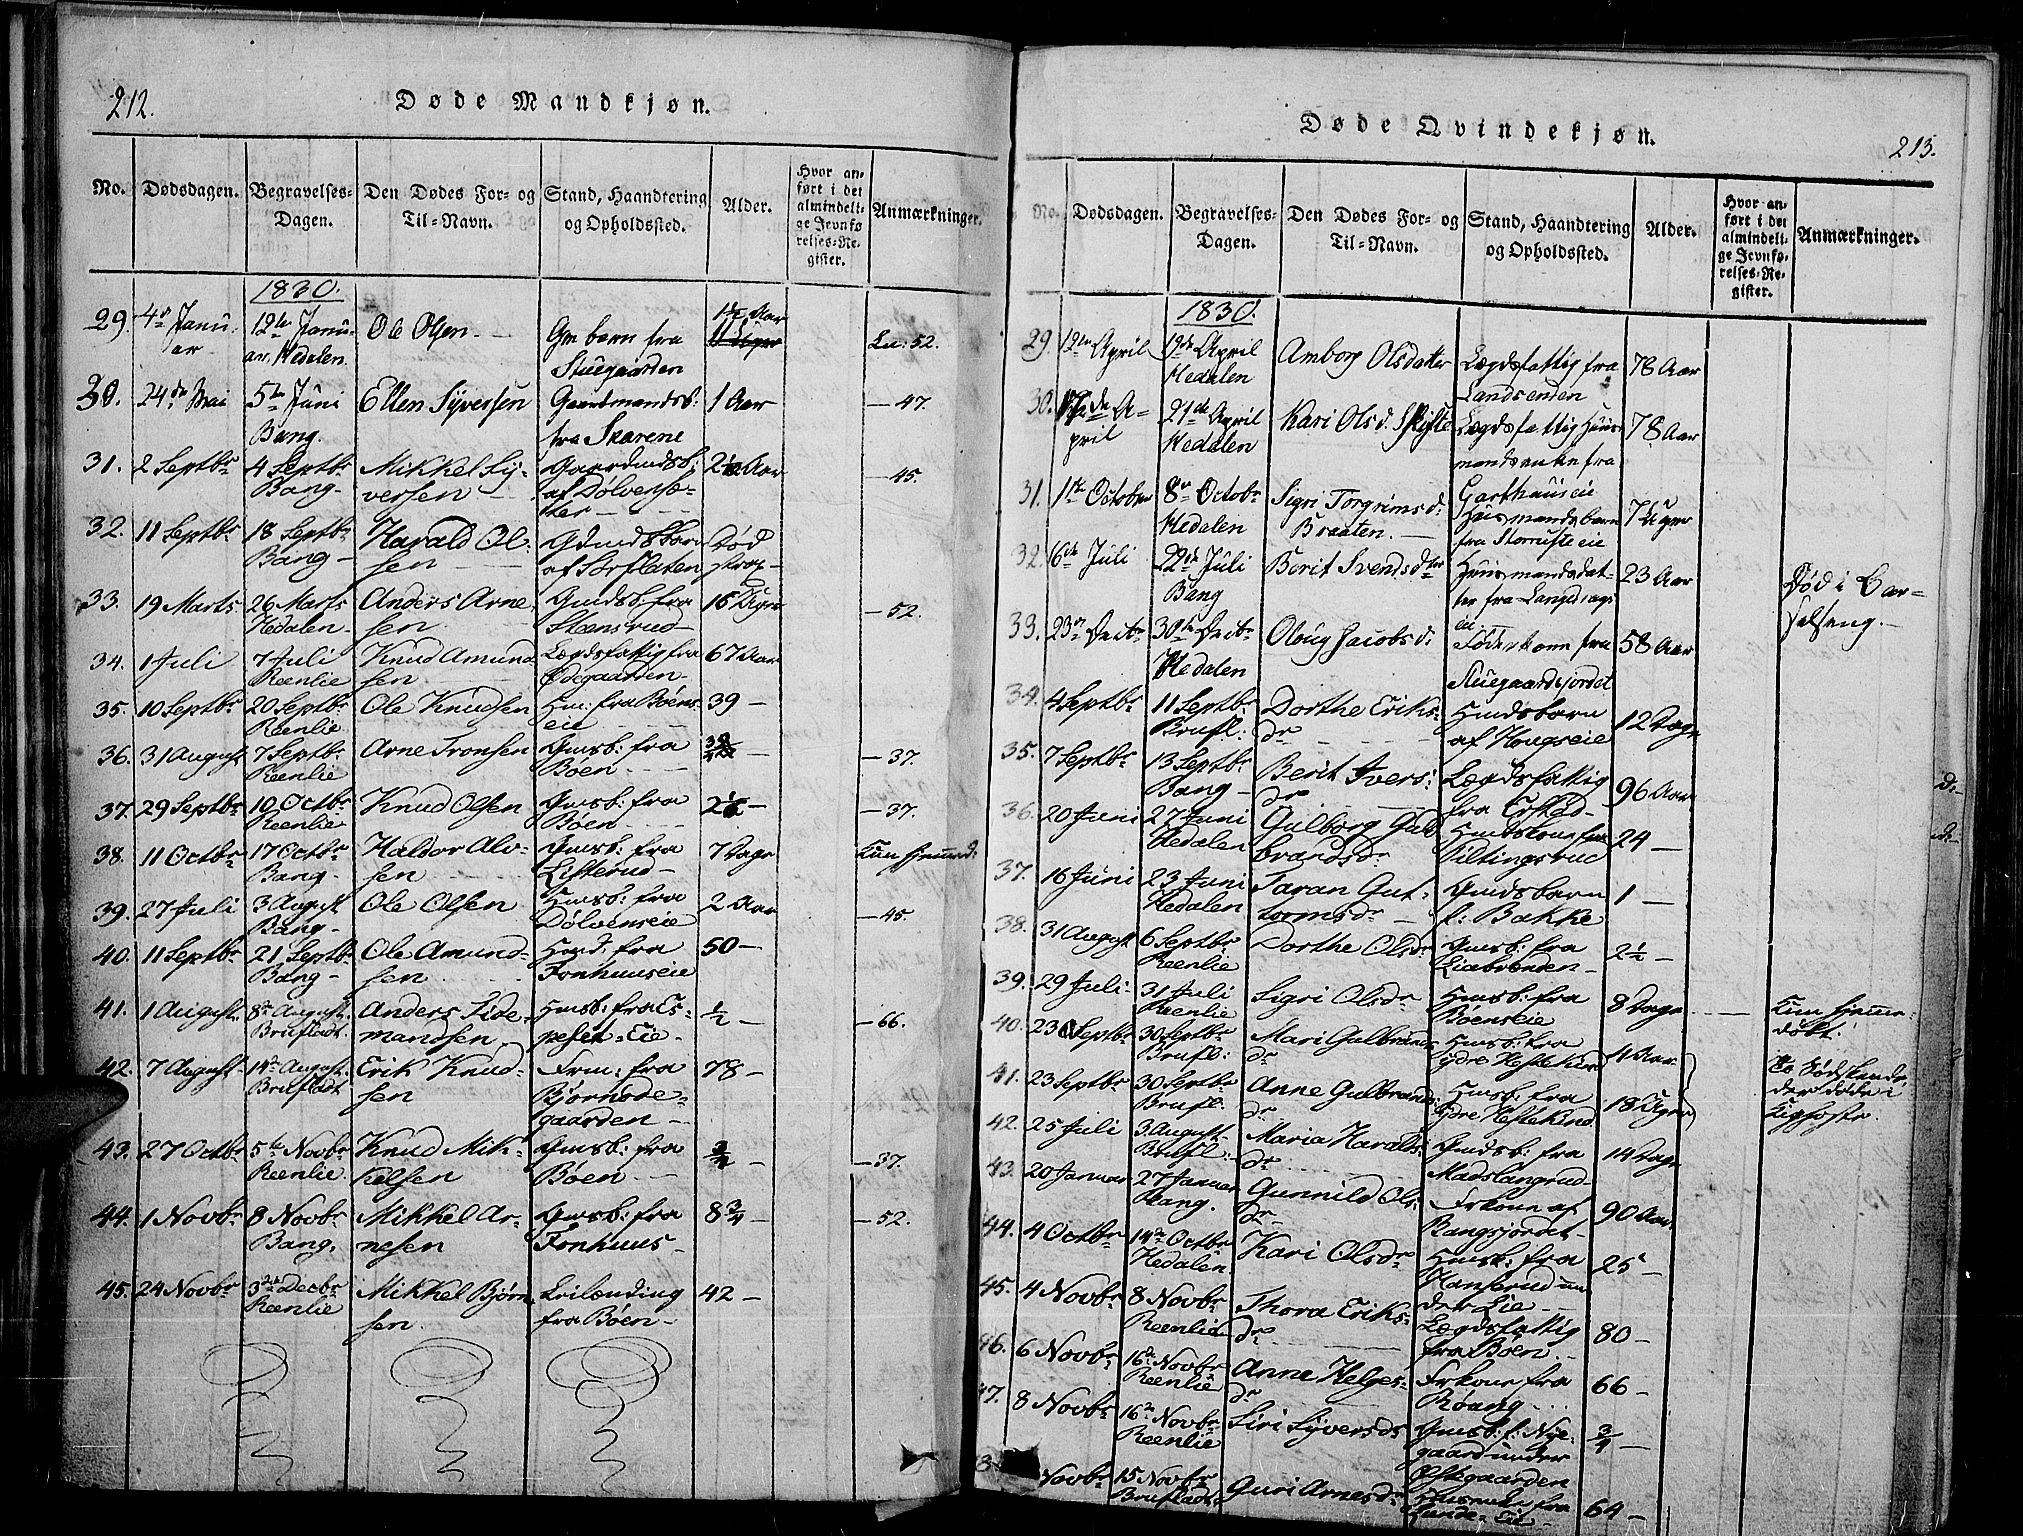 212.
Døde Mandkjøn.
No. Dødsdagen. Begravelses-Dagen. Den Dødes For- og Til-Navn. Stand, Haandtering og Opholdssted. Alder. Hvor anført i det almindelige Jevnførelses-Register. Anmærkninger.
1830.
29. 4de Januar 12te Januar, Hedalen. Ole Olsen Gm barn fra Stuegaarden 1½ Aar 52.
30. 24de Mai 5te Juni Bang. Ellen Syversen Gaardmandsb: fra Skarene 1 Aar — 47.
31. 2 Septbr 4 Septbr Bang Mikkel Syversen Gaardmdsb: af Dølvensæter 2½ Aar — 45.
32. 11 Septbr 18 Septbr Bang Harald Olsen Gdmdsbarn af Sørflaten Død
33. 19 Marts 26 Marts Hedalen Anders Arnesen Gmdsb: fra Steensrud 16 Uger — 52.
34. 1 Juli 7 Juli Reenlie Knud Amundsen Lægdsfattig fra Ødegaarden 67 Aar
35. 10 Septbr 20 Septbr Reenlie Ole Knudsen Hm. fra Bøenseie 39 —
36. 31 August 7 Septbr Reenlie Arne Tronsen Gmsb: fra Bøen — 37.
37. 29 Septbr 10 Octbr Reenlie Knud Olsen Gmsb: fra Bøen — 37.
38. 11 Octbr 17 Octbr Bang Haldor Alvsen Gmsb: fra Listerud 7 Dage Kun hjemmed:
39. 27 Juli 3 August Bang Ole Olsen Hmsb: fra Dølvenseie 2 Aar — 45.
40. 11 Septbr 21 Septbr Bang Ole Amundsen Hmd. fra Fonhuuseie 50 —
41. 1 August 8de August Brufladt. Anders Lidemandsen Hmsb: fra Espeset-Eie ½ — 66.
42. 7 August 14de August Brufladt Erik Knudsen Frm: fra Bjørnødegaarden 78 —
43. 27 Octbr 5te Novbr Reenlie. Knud Mikkelsen Gmsb: fra Bøen ¾ — 37.
44. 1 Novbr 8 Novbr Bang. Mikkel Arnesen Gmsb: fra Fonhuus 8¾ — 52.
45. 24 Novbr 3de Decbr Reenlie Mikkel Bjørnsen Leilænding fra Bøen 42 —
Døde Qvindekjøn.
213.
No. Dødsdagen. Begravelses-Dagen. Den Dødes For- og Til-Navn. Stand, Haandtering og Opholdssted. Alder. Hvor anført i det almindelige Jevnførelses-Register. Anmærkninger.
1830.
29. 12te April 19de April Hedalen Amborg Olsdatter Lægdsfattig fra Landsenden 78 Aar
30. 17de April 21de April Hedalen Kari Olsd. Skyte Lægdsfattig Huusmandsenke fra Garthuuseie 78 Aar
31. 1te October 8de Octobr Hedalen Sigri Torgrimsd: Braaten. Huusmandsbarn fra Storrusteeie 7 Uger
32. 16de Juli 22de Juli Bang Berit Svendsdtr Huusmandsdatter fra Langedrags eie 23 Aar Død i Barselseng.
33. 23de Deit: 30te Deit: Hedalen Oloug Jacobsd: Føderkone fra Stuegaardsjordet 58 Aar
34. 4 Septbr 11 Septbr Brufl: Dorthe Eriksdr Hmdsbarn af Hougseie 12 Dage
35. 7 Septbr 13 Septbr Bang Berit Iversdr Lægdsfattig fra 96 Aar
36. 20 Juni 27 Juni Hedalen Gulborg Guldbrandsdr Hmdskone fra Tiltingsrud 24 —
37. 16 Juni 23 Juni Hedalen Taran Guttormsdr Gmdsbarn f: Bakke 1 —
38. 31 August 6 Septbr Reenlie Dorthe Olsdr Gmsb: fra Liebrenden 2½ —
39. 29 Juli 31 Juli Reenlie Sigri Olsdr Hmsb: fra Bøenseie 8 Dage Kun hjemmedøbt!
40. 23 Septbr 30 Septbr Brufl: Mari Gulbrandsdr Hmsb: fra ydre Hestekind 4 Aar To Sødskende, der døde i
41. 23 Septbr 30 Septbr Brufl: Anne Gulbrandsdr Hmsb: fra ydre Hestekind 18 Uger
42. 25 Juli 3 August Brufl: Maria Haraldsdr Gmdsb: fra Madslangrud 14 Dage
43. 20 Januar 27 Januar Bang. Gunnild Olsdr Frkone af Bangsjordet 90 Aar.
44. 4 Octbr 14de Octbr Hedalen. Kari Olsdr Hmsk: fra Hanserud under Lie 25 —
45. 4 Novbr 8 Novbr Reenlie Thora Eriksdr Lægdsfattig fra Bøen 80 —
46. 6 Novbr 16de Novbr Reenlie Anne Helgesdr Frkone fra Røang 66 —
47. 8 Novbr 16de Novbr Reenlie Siri Syversdr Gmsb: f: Nyegaard under Østegaarden ¾ —
Novbr 15 Novbr Brufladt. Guri Arnesdr fra Lunde-Eie 64 —